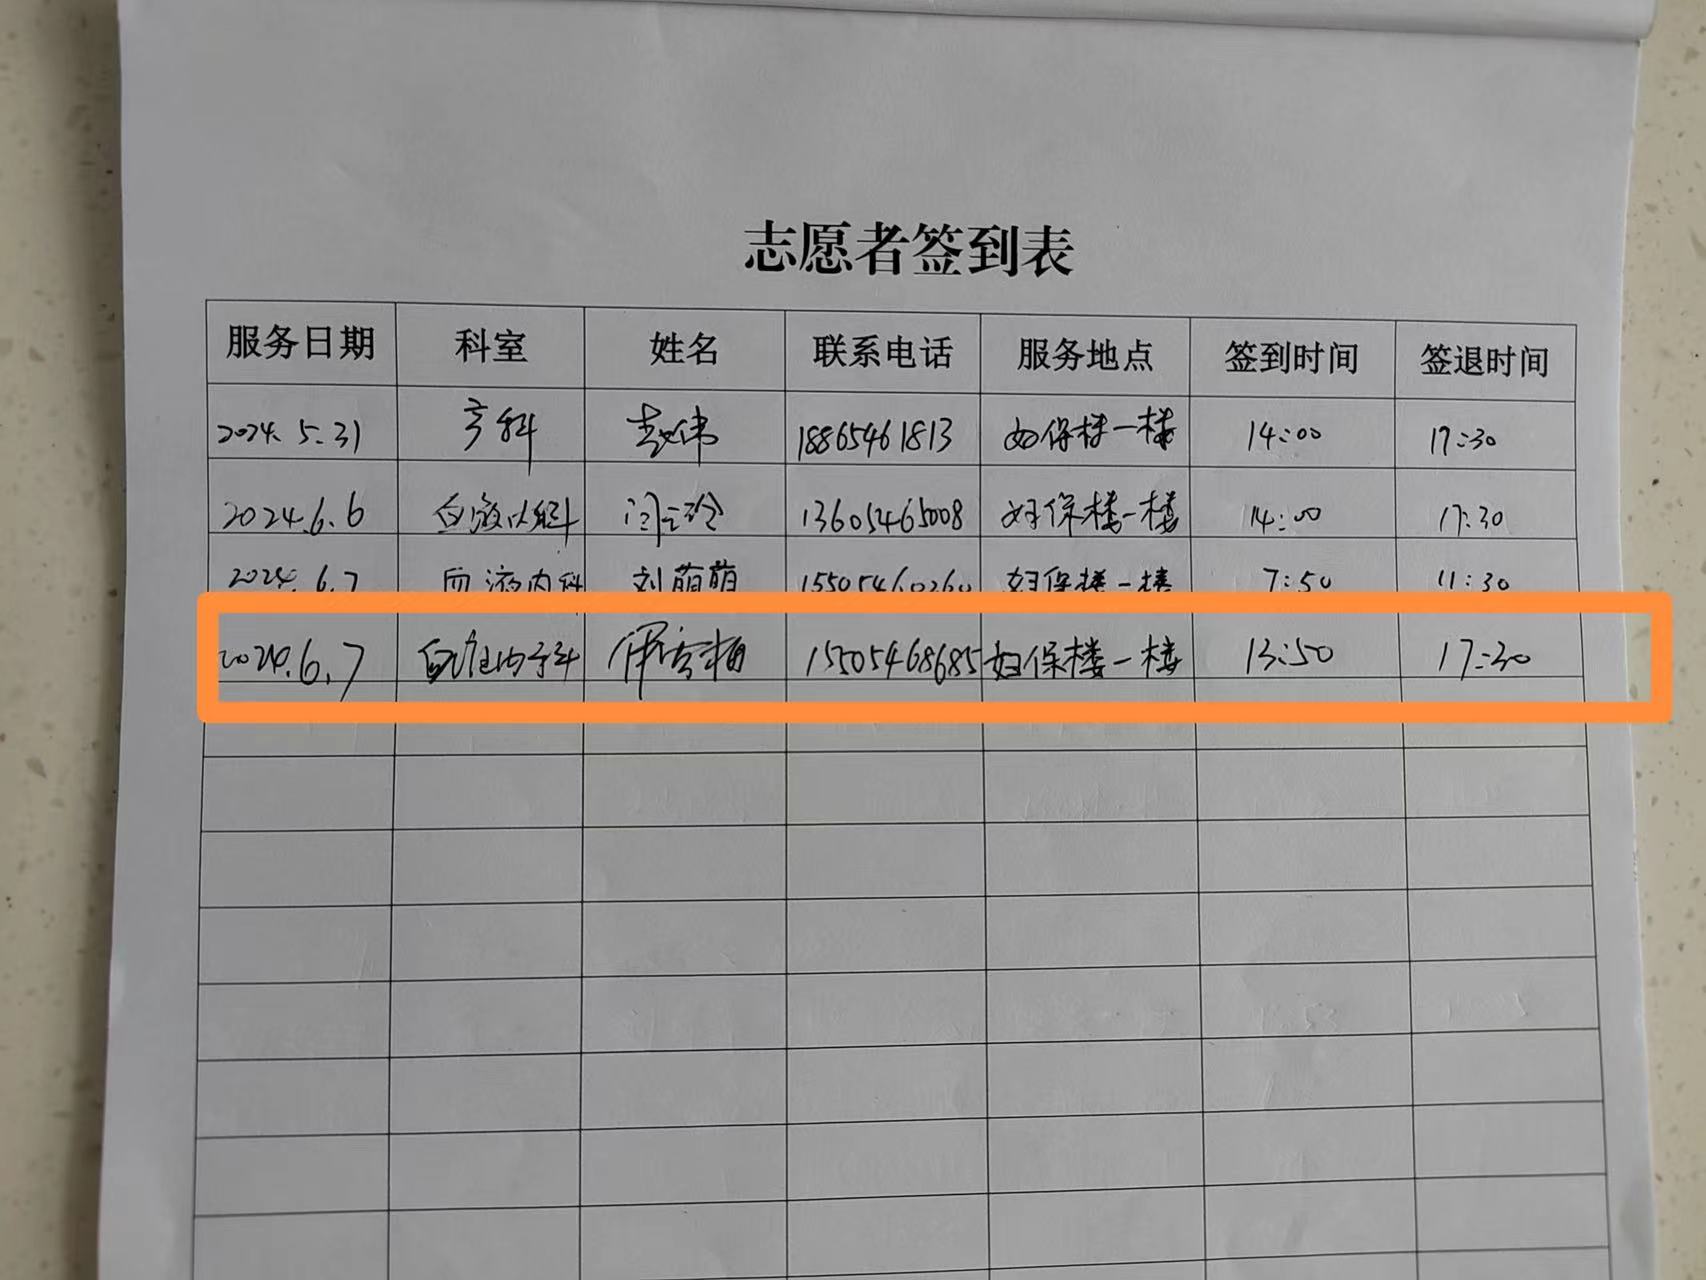 志愿者签到表
服务日期 科室 姓名 联系电话 服务地点 签到时间 签退时间
2024.5.31 产科 赵伟 18865461813 妇保楼一楼 14:00 17:30
2024.6.6 血液内科 闫玲 13605465008 妇保楼一楼 14:00 17:30
2024.6.7 血液内科 刘萌萌 15505460260 妇保楼一楼 7:50 11:30
2024.6.7 15505468685 妇保楼一楼 13:50 17:30